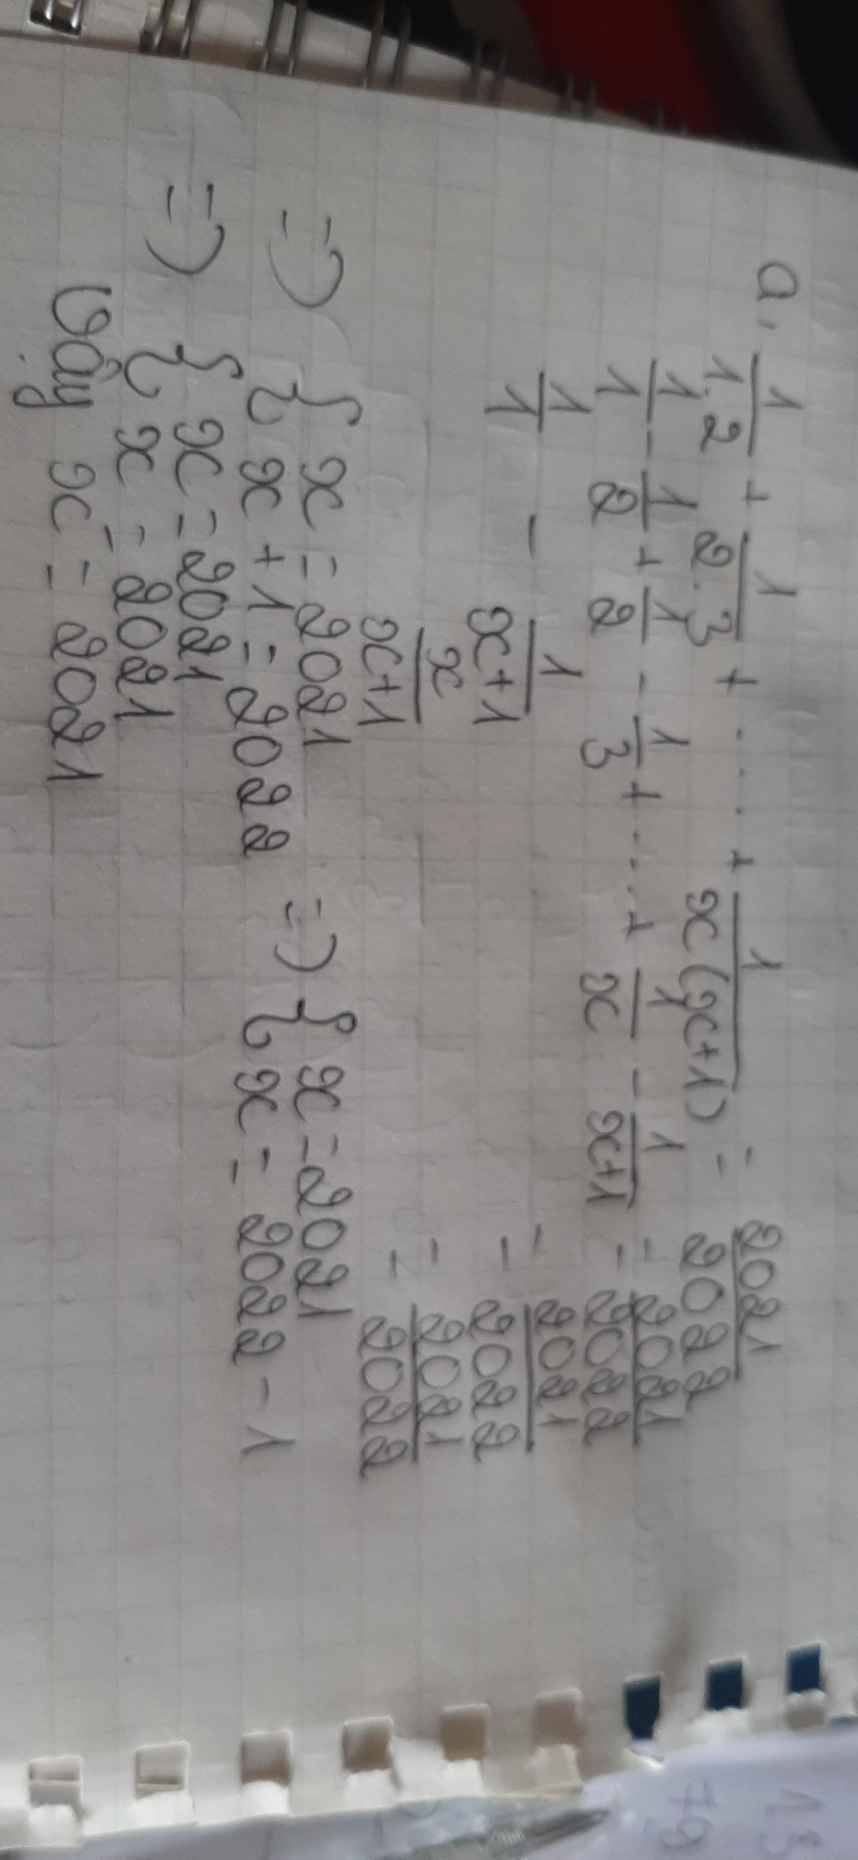 a, 1/1.2 + 1/2.3 + .... + 1/x(x+1) = 2021/2022
1/1 - 1/2 + 1/2 - 1/3 + .... + 1/x - 1/x+1 = 2021/2022
1/1 - 1/x+1 = 2021/2022
x/x+1 = 2021/2022
=> { x = 2021 => { x = 2021
x + 1 = 2022 x = 2022 - 1
=> { x = 2021
x = 2021
Vậy x = 2021